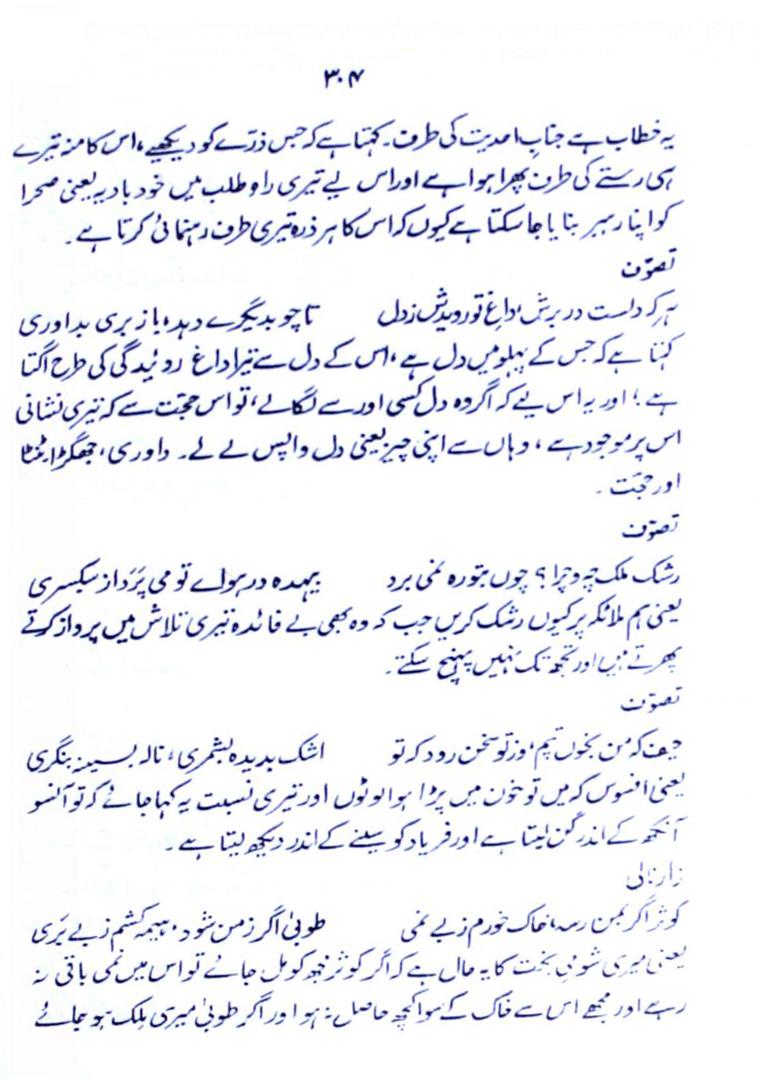 ۳۰۴
یہ خطاب ہے جنابِ احدیت کی طرف۔ کہتا ہے کہ جس ذرّے کو دیکھیے، اس کا منہ تیرے
ہی رستے کی طرف پھرا ہوا ہے اور اس لیے تیری راہِ طلب میں خود بادیہ یعنی صحرا
کو اپنا رہبر بنایا جا سکتا ہے کیوں کہ اس کا ہر ذرہ تیری طرف رہنمائی کرتا ہے۔
تصوّف
ہر کہ دلست در برش، داغِ تو رویدش ز دل تا چو بدیگرے دہد، باز بری بداوری
کہتا ہے کہ جس کے پہلو میں دل ہے، اس کے دل سے تیرا داغ روئیدگی کی طرح اگتا
ہے؛ اور یہ اس لیے کہ اگر وہ دل کسی اور سے لگائے، تو اس حجت سے کہ تیری نشانی
اس پر موجود ہے، وہاں سے اپنی چیز یعنی دل واپس لے لے۔ داوری، جھگڑا ٹنٹا
اور حجّت۔
تصوّف
رشک ملک چہ و چرا؟ چوں بتو رہ نمی برد بیہدہ در ہواے تو می پرَد از سبکسری
یعنی ہم ملائکہ پر کیوں رشک کریں جب کہ وہ بھی بے فائدہ تیری تلاش میں پرواز کرتے
پھرتے ہیں اور تجھ تک نہیں پہنچ سکتے۔
تصوّف
حیف کہ من بخوں تپم، وز تو سخن رود کہ تو اشک بدیدہ بشمری، نالہ بسینہ بنگری
یعنی افسوس کہ میں تو خون میں پڑا ہوا لوٹوں اور تیری نسبت یہ کہا جائے کہ تو آنسو
آنکھ کے اندر گن لیتا ہے اور فریاد کو سینے کے اندر دیکھ لیتا ہے۔
زار نالی
کوثر اگر بمن رسد، خاک خورم ز بے نمی طوبیٰ اگر ز من شود، ہیمہ کشم ز بے بَری
یعنی میری شومیِ بخت کا یہ حال ہے کہ اگر کوثر مجھ کو مل جائے تو اس میں نمی باقی نہ
رہے اور مجھے اس سے خاک کے سوا کچھ حاصل نہ ہو اور اگر طوبیٰ میری مِلک ہو جائے